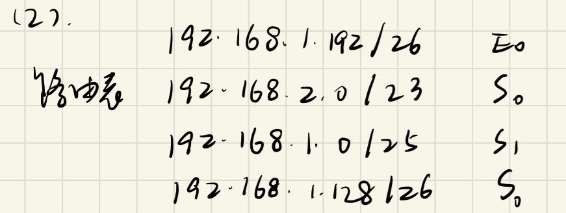 (2).
192.168.1.192/26 E0
路由表 192.168.2.0/23 S0
192.168.1.0/25 S1
192.168.1.128/26 S0